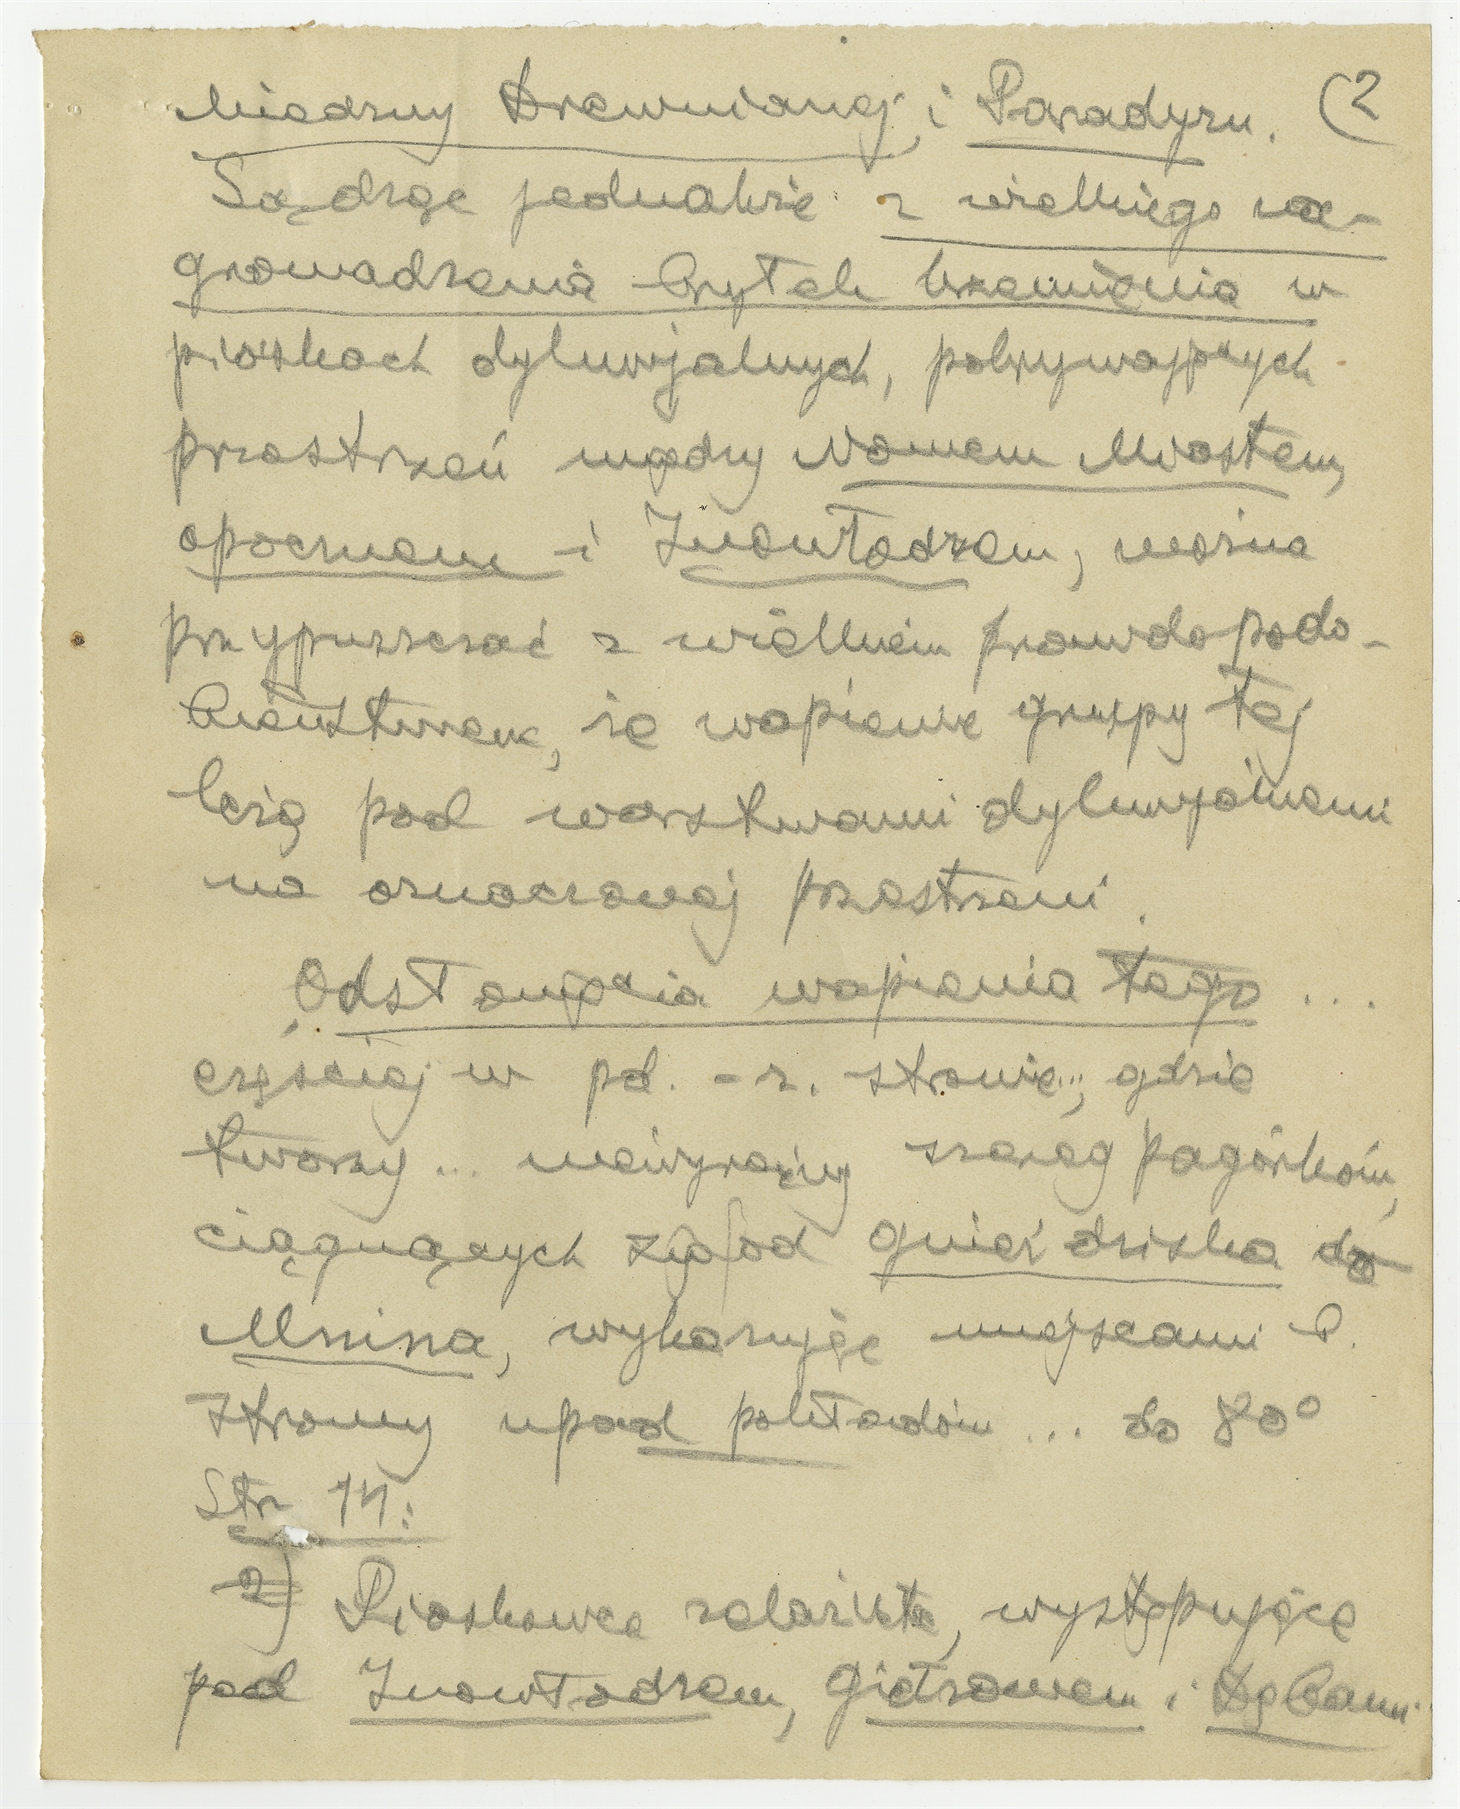 Miedzny Drewnianej i Paradyzu. (2
Sądząc jednakże z wielkiego na-
gromadzenia brył ch krzemienia w
piaskach dyluwjalnych, pokrywających
przestrzeń między Nowem Miastem,
Opocznem i Inowłodzem, można
przypuszczać z wielkiem prawdopodo-
bieństwem, że wapienie grupy tej
leżą pod warstwami dyluwjalnemi
na oznaczonej przestrzeni.
Odsłonięcia wapienia tego ...
częściej w pd. - z. stronie..., gdzie
tworzy ... niewyraźny szereg pagórków,
ciągnących się od Gnieździska do
Mnina, wykazując miejscami
stromy upad pokładów ... do 80°
Str 14:
2) Piaskowce żelaziste, występujące
pod Inowłodzem, Gielzowem i Dębami